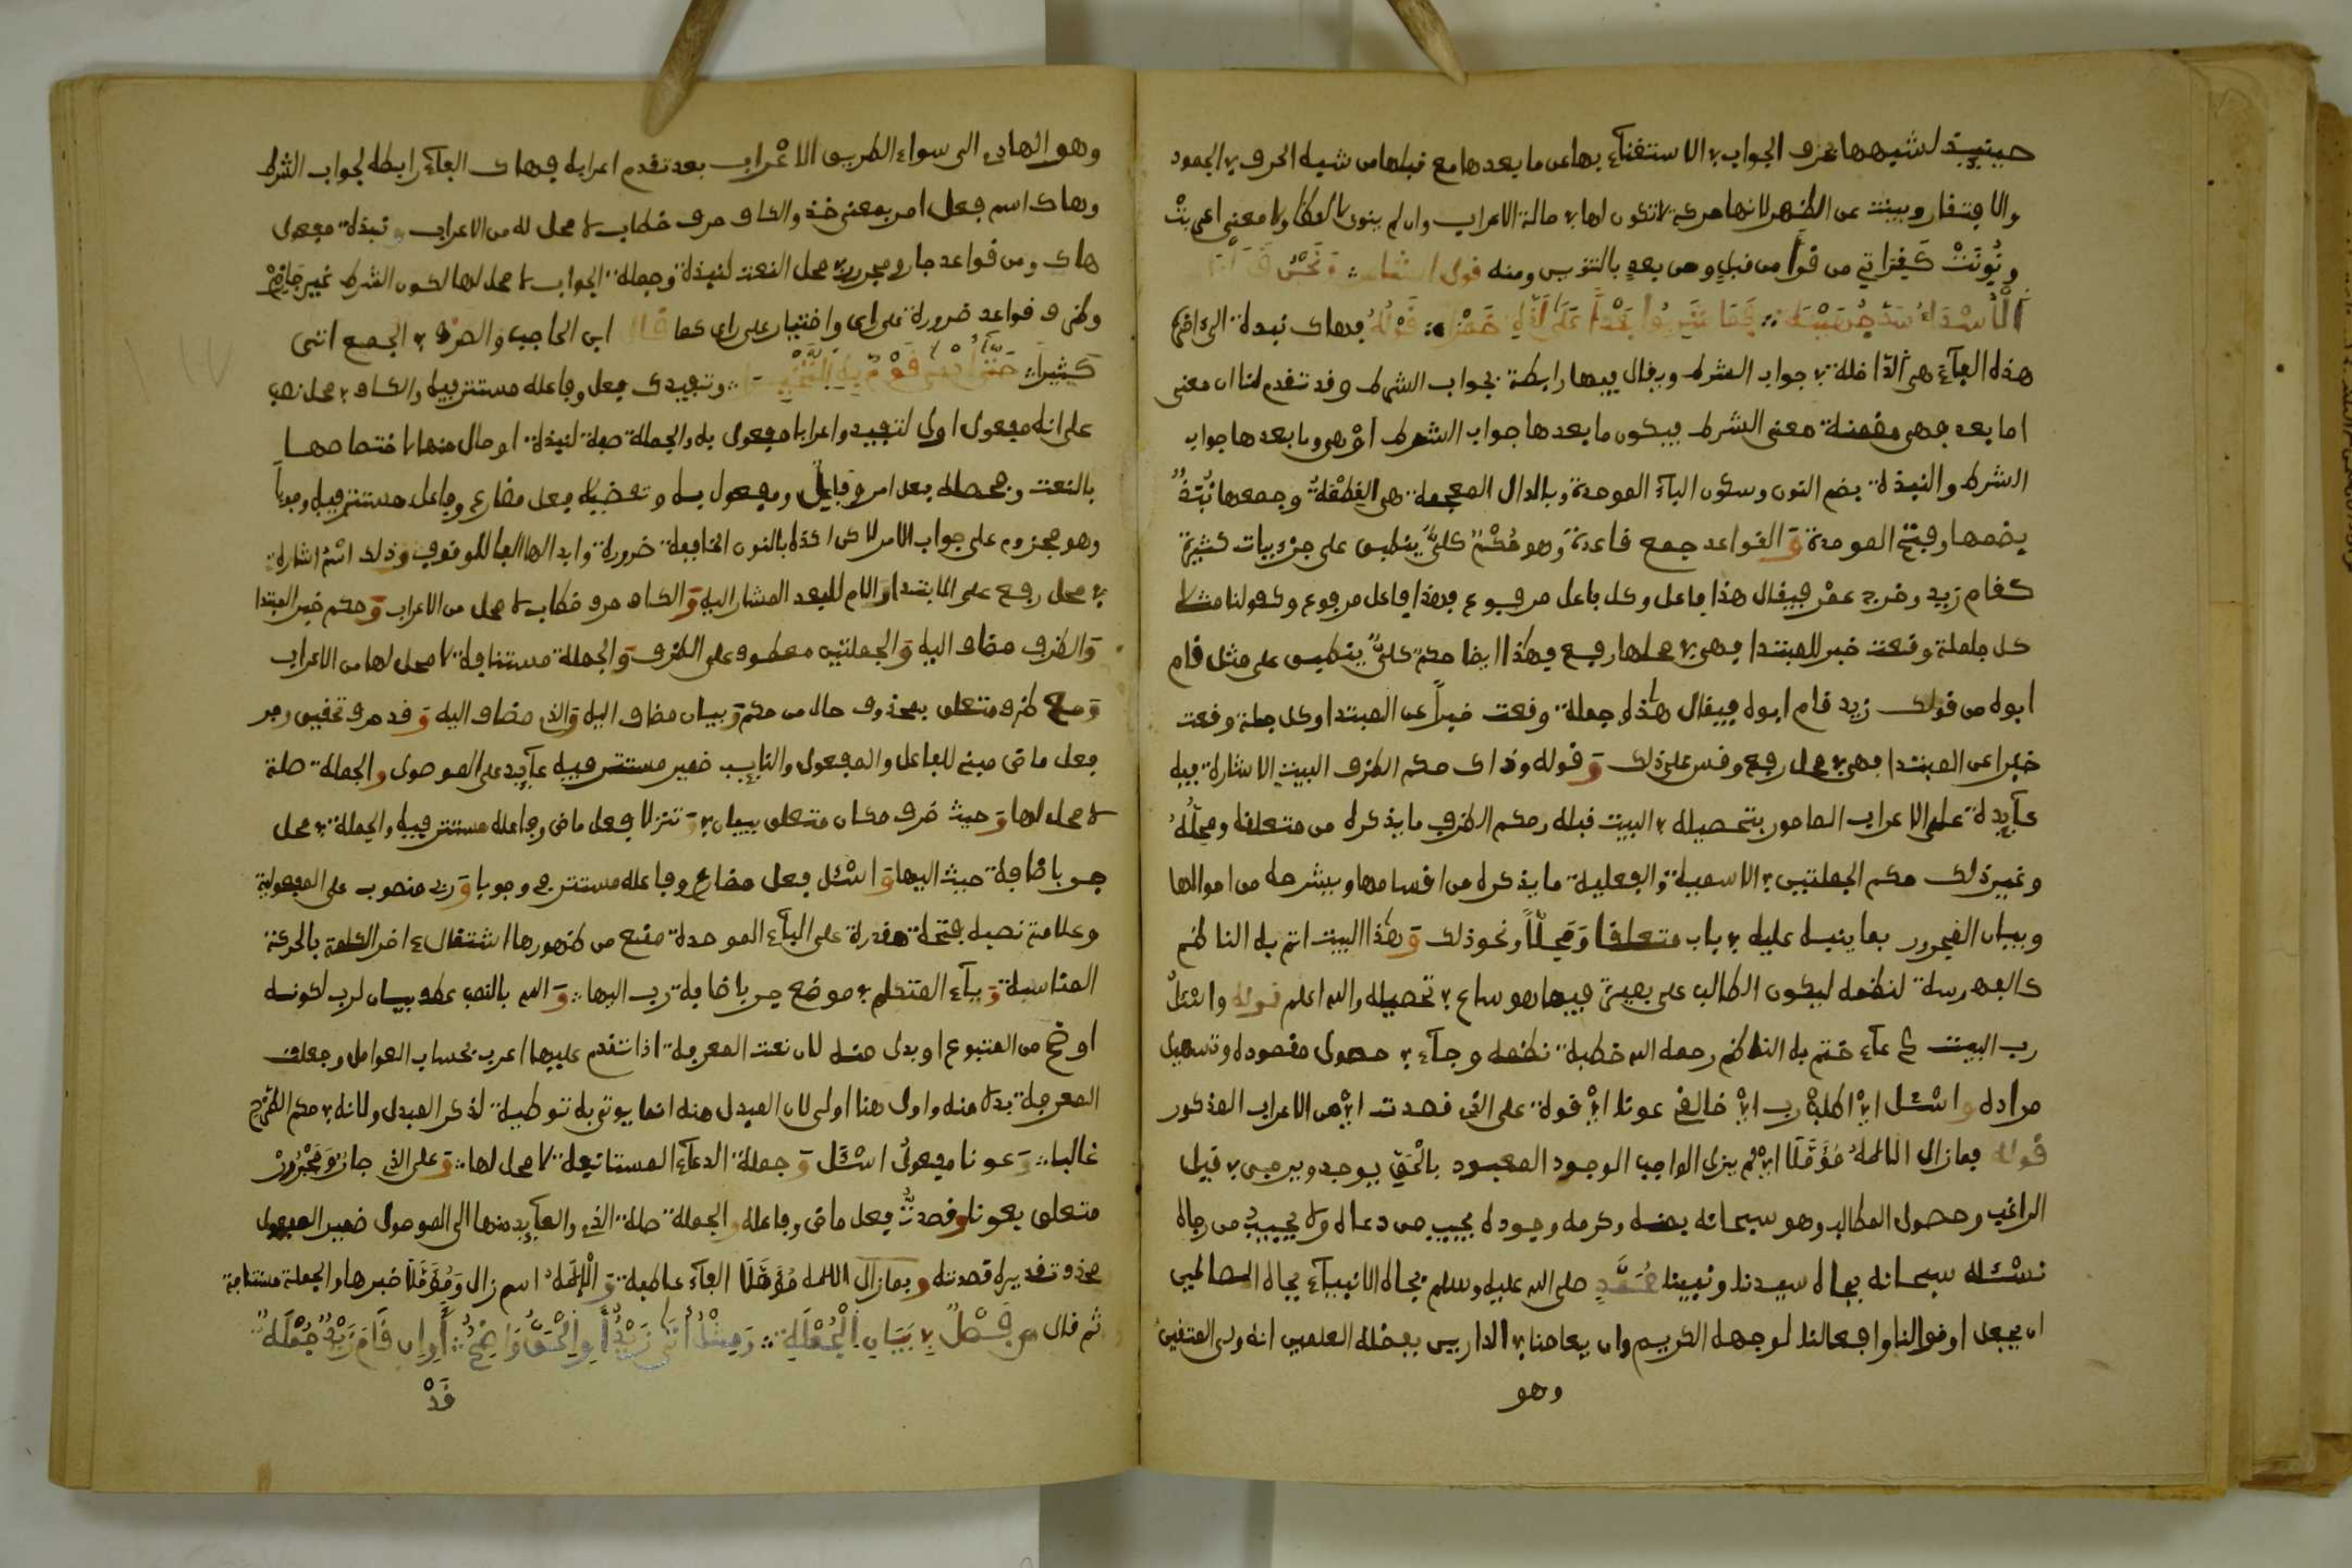 حينيذ لشبهها بحرف الجواب في الاستغناء بها عن ما بعدها مع قبلها من شبه الحرف في الجمود
والافتقار وبينت عن الظهر لانها حركة لا تكون لها في حالة الاعراب وان لم ينون لا لفظا ولا معنى اعربت
ونُونَتْ كقراتي من قرا من قبلٍ ومن بعدٍ بالتنوين ومنه قول الشاعر ونحن قتلنا
الْأُسْدَ أُسْدَ خُفْيَةٍ فَمَا شَرِبُوا بَعْدًا عَلَى لَذَّةٍ خَمْرَا قَوْلُهُ فهاك نبذة الى اخره
هذه الفآء هي الداخلة في جواب الشرط ويقال فيها رابطة لجواب الشرط وقد تقدم لنا ان معنى
اما بعد فهي مضمنة معنى الشرط فيكون ما بعدها جواب الشرط او هي وما بعدها جواب
الشرط والنبذة بضم النون وسكون البآء الموحدة وبالدال المعجمة هي القِطْعَة وجمعها نُبَذٌ
بضمها وفتح الموحدة وَ القواعد جمع قاعدة وهو حُكْمٌ كليٌّ ينطبق على جزئيات كثيرة
كقام زيد وخرج عمْر فيقال هذا فاعل وكل فاعل مرفوع فهذا فاعل مرفوع وكقولنا مثلا
كل جملة وقعت خبر للمبتدا فهي في محلها رفع فهكذا ايضا حكم كليٌّ ينطبق على مثل قام
ابوه من قولك زيد قام ابوه فيقال هذه جملة وقعت خبراً عن المبتدا وكل جملة وقعت
خبرا عن المبتدا فهي في محل رفع وقس على ذلك وَ قوله وذاك حكم الظرف البيت الاشارة فيه
عآيدة على الاعراب المامور بتحصيله في البيت قبله وحكم الظرف ما يذكره من متعلقه ومحلّه
وغير ذلك حكم الجملتين في الاسمية والفعلية ما يذكره من اقسامها ويشرحه من احوالها
وبيان المجرور بما ينبه عليه في باب متعلقا وَمَحِلّاً ونحو ذلك وَ هذا البيت اتم به الناظم
كالفهرسة لنظمه ليكون الطالب على بصيرة فيما هو ساع في تحصيله والله اعلم قوله واسْئَل
رب البيت دعآء ختم به الناظم رحمه الله خطبة نظمه وجآء في حصول مقصوده وتسهيل
مراده واسْئَل ايْ اطلبْ رب ايْ خالقي عونا ايْ قوة على التي قصدت ايْ من الاعراب المذكور
قوله فمازال الالهُ مُؤَمَّلَا ايْ لم يزل الواجب الوجود المعبود بالْحَقِّ يوجد ويرجى في نيل
الراغب وحصول المطالب وهو سبحانه بمنه وكرمه وجوده يجيب من دعاه ولا يخيب من رجاه
نسْئَله سبحانه بجاه سيدنا ونبينا مُحَمَّدٍ صلى الله عليه وسلم بجاه الانبيآء بجاه الصالحين
ان يجعل اقوالنا وافعالنا لوجهه الكريم وان يعاملنا في الدارين بفضله العلمين انه ولي المتقين
وهو
وهو الهادي الى سواء الطريق الاعْراب بعد تقدم اعرابه فهاك الفآء رابطة لجواب الشرط
وهاك اسم فعل امر بمعنى خذ والكاف حرف خطاب لا محل له من الاعراب ونبذة مفعول
هاك ومن قواعد جار ومجرور في محل النعت لنبذة وجملة الجواب لا محل لها لكون الشرط غير جازم
وظرف قواعد ضرورة على راي واختيار على راي كما قال ابن الحاجب والصرف في الجمع اتى
كثيراً حَتَّى ادَّعَى قَوْمٌ بِهِ التَّخْيِيرَا وتفيدك فعل وفاعله مستتر فيه والكاف في محل نصب
على انه مفعول اول لتفيد واعرابا مفعول به والجملة صفة لنبذة او حال منها لاختصاصها
بالنعت وحصله فعل امر وفاعل ومفعول به وتحضيه فعل مضارع وفاعله مستتر فيه وجوباً
وهو مجزوم على جواب الامر لاكن اكده بالنون الخفيفة ضرورة وابدالها الفا للوقوف وذلك اسْم اشارة
في محل رفع على الابتدا وَاللام للبعد المشار اليه وَالكاف حرف خطاب لا محل من الاعراب وَحكم خبر المبتدا
وَالظرف مضاف اليه وَالجملتين معطوف على الظرف وَالجملة مستنافة لا محل لها من الاعراب
وَمع ظرف متعلق بمحذوف حال من حكم وَبيان مضاف اليه وَالذي مضاف اليه وَ قد حرف تحقيق وجر
فعل ماض مبني للفاعل والمفعول والنايب ضمير مستتر فيه عآيد على الموصول والجملة صلة
لا محل لها وَحيث ظرف مكان متعلق ببيان وَ تنزلا فعل ماض وفاعله مستتر فيه والجملة في محل
جر باضافة حيث اليها وَ اسْئَل فعل مضارع وفاعله مستتر فيه وجوبا وَرب منصوب على المفعولية
وعلامة نصبه فتحة مقدرة على البآء الموحدة منع من ظهورها اشتغال اخر الكلمة بالحركة
المناسبة وَيآء المتكلم في موضع جر باضافة رب اليها وَ الله بالنصب عطف بيان لرب لكونه
اوضح من المتبوع او بدل منه لان نعت المعرفة اذا تقدم عليها اعرب بحساب العوامل وجعلت
المعرفة بدلا منه واول هنا اولى لان المبدل منه انما يوتى به توطية لذكر المبدل ولانه في حكم الطرح
غالبا وَعونا مفعولُ اسْئَل وَ جملة الدعآء المستانفة لا محل لها وَ على الذي جارٌ وَمَجْرُورٌ
متعلق بعونا وقصدتُ فعل ماض وفاعله والجملة صلة الذي والعآيد منها الى الموصول ضمير المفعول
محذوف تقديره قصدته وفمازال الاله مُؤَمَّلَا الفآء عاطفة وَ الْإِلَهُ اسم زال وَمُؤَمَّلَا خبرها والجملة مستنافة
ثم قال فَصْلٌ فِي بَيَانِ الْجُمْلَةِ وَمِثْلُ أَتَى زَيْدٌ أَوِ الْحَقُّ وَاضِحٌ أَوِ ان قَامَ زَيْدٌ جُمْلَةٌ
قَدْ